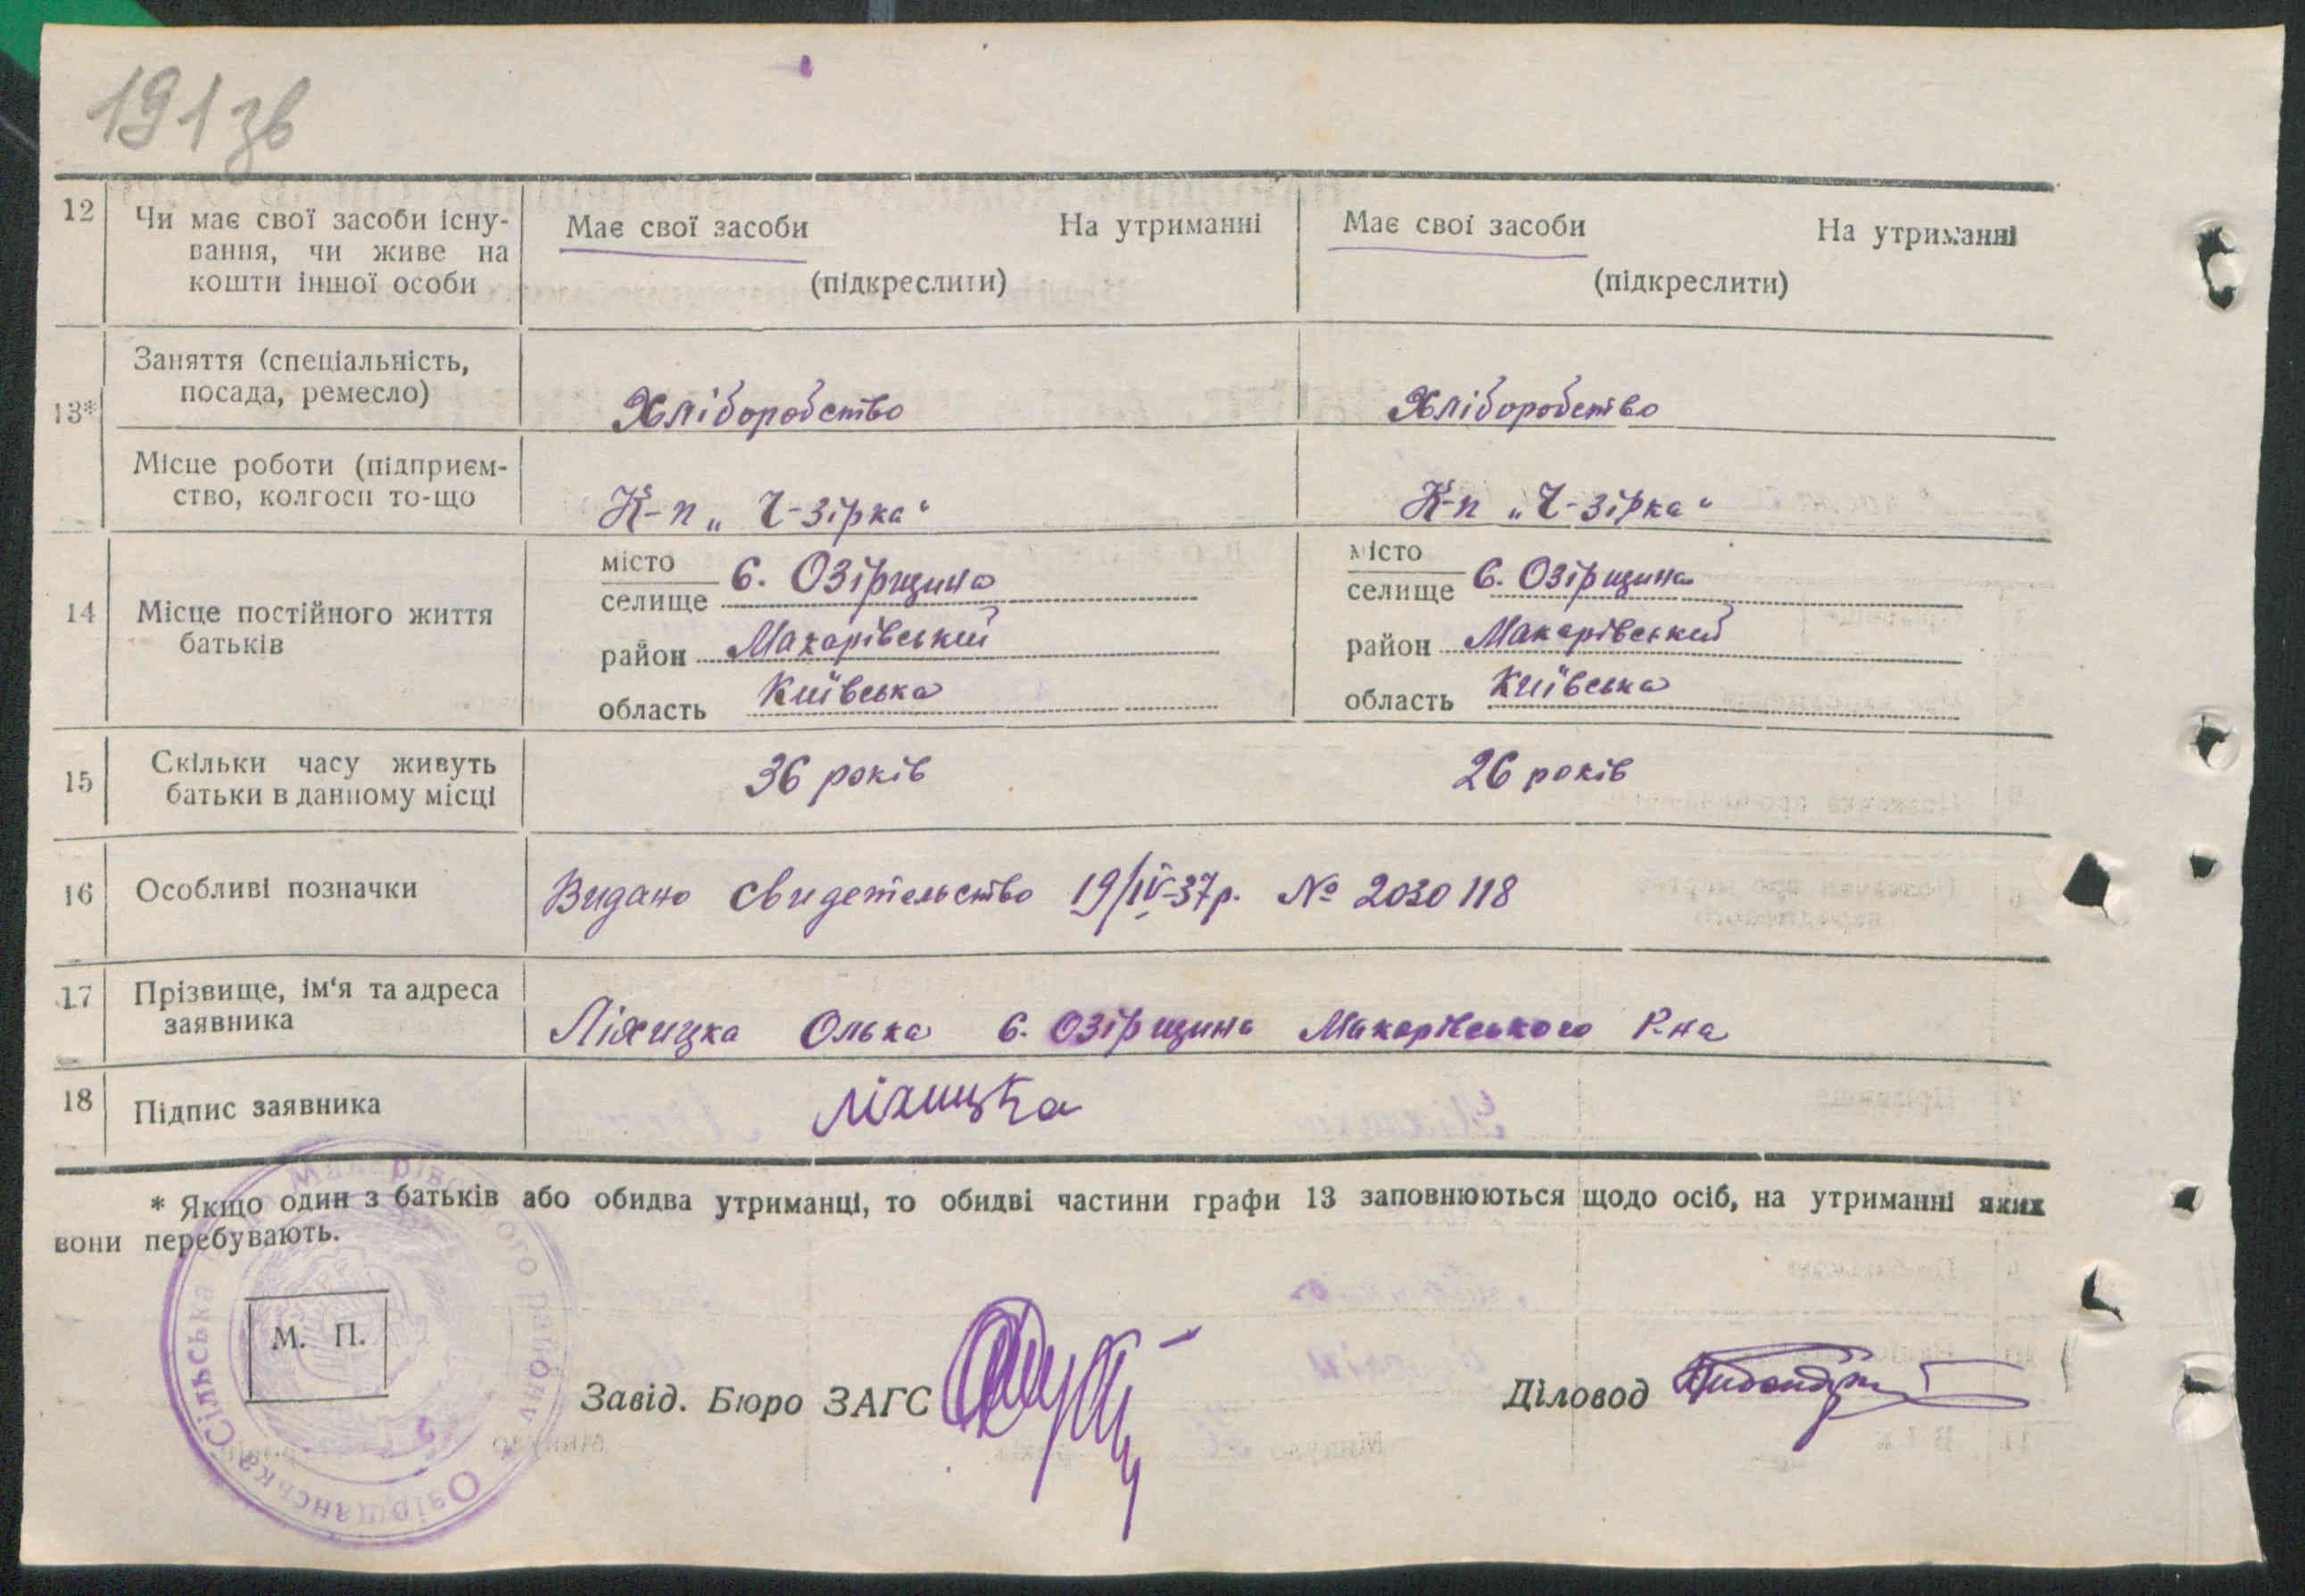 191 зв
12 Чи має свої засоби існу-
вання, чи живе на
кошти іншої особи
Має свої засоби На утриманні
(підкреслити)
Має свої засоби На утриманні
(підкреслити)
13* Заняття (спеціальність,
посада, ремесло)
Хліборобство
Хліборобство
Місце роботи (підприєм-
ство, колгосп то-що
К-п „Ч-зірка“
К-п „Ч-зірка“
14 Місце постійного життя
батьків
місто
селище с. Озірщина
район Макарівський
область Київська
місто
селище с. Озірщина
район Макарівський
область Київська
15 Скільки часу живуть
батьки в данному місці
36 років
26 років
16 Особливі позначки
Видано свидетельство 19/IV-37р. № 2030118
17 Прізвище, ім‘я та адреса
заявника
Ліхицка Олька с. Озірщина Макарівського р-на
18 Підпис заявника
Ліхицка
* Якщо один з батьків або обидва утриманці, то обидві частини графи 13 заповнюються щодо осіб, на утриманні яких
вони перебувають.
Озірщанська Сільська Макарівського району
М. П.
Завід. Бюро ЗАГС
Діловод